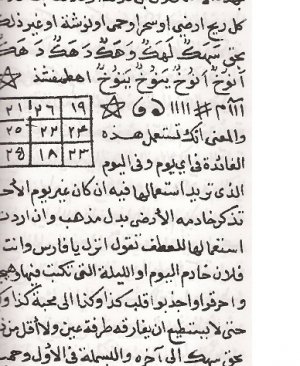 كل ريح ارضي او سحر او حمى او نوشة او غير ذلك
بحق سهكٍ لهكٍ وحكٍ دهكٍ دهكٍ
انوخ انوخٌ ينوخٌ ينوخٌ اهطمفشذ ☆
١١١م # ١١١١ ☆
والمعنى انك تستعمل هذه
الفائدة في اي يوم وفي اليوم
الذى تريد استعمالها فيه ان كان غير يوم الاحد
تذكر خادمه الأرضى بدل مذهب وان اردت
استعمالها للعطف تقول انزل يا فارس وانت
فلان خادم اليوم او الليلة التى تكتب فيها
واحرقوا واجذبوا قلب كذا وكذا الى محبة كذا وكذا
حتى لا يستطيع ان يفارقه طرفة عين ولا اقل من
بحق سهك الى آخره والبسملة فى الاول
٢١ ٢٦ ١٩
٢٥ ٢٢ ٢٤
١٨ ٢٣